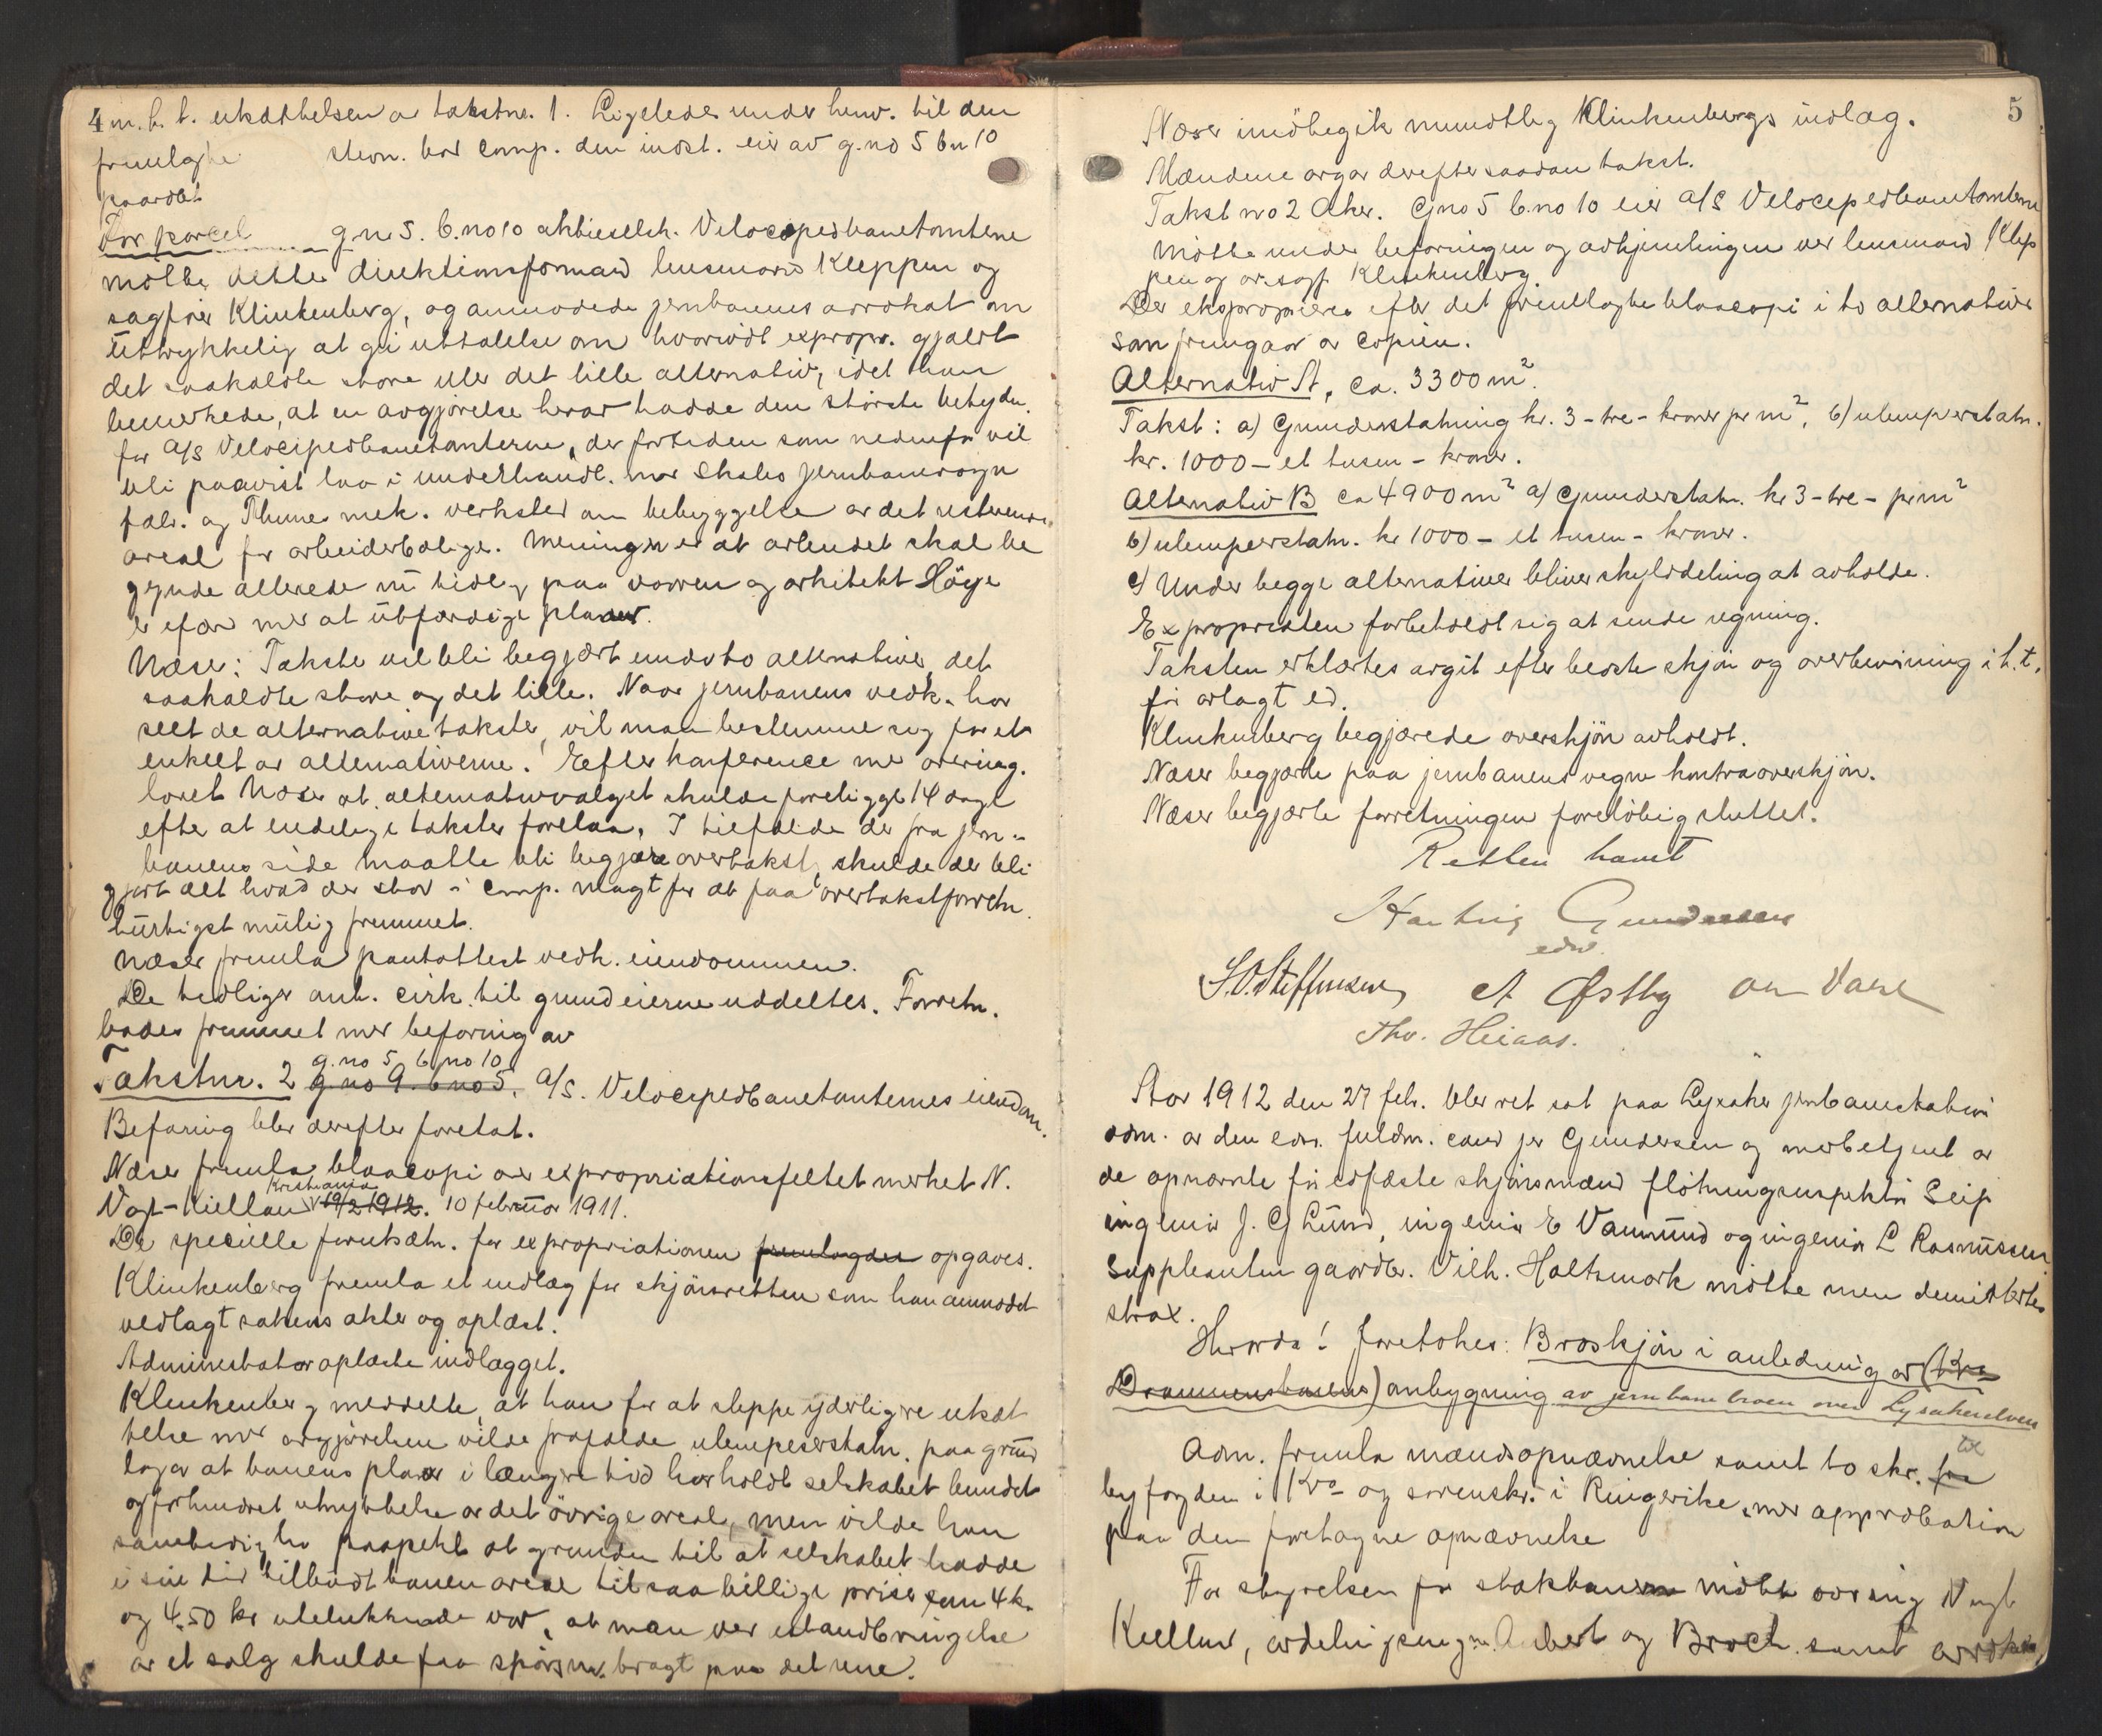 4 m. h. t. utsættelsen av takstnr. 1. Ligeledes under henv. til den
fremlagte stevn. bad comp. den indst. eier av g.no 5 b.n 10
paaraabt
For parcel g.n. 5. b.no 10 aktieselsk. Velocipedbanetomterne
mötte dettes direktionsformand lensmand Kleppen og
sagfører Klinkenberg, og anmodede jernbanens advokat om
uttrykkelig at gi uttalelse om hvorvidt expropr. gjaldt
det saakaldte store eller det lille alternativ, idet han
bemerkede, at en avgjørelse herav hadde den störste betydn.
for A/S Velocipedbanetomterne, der for tiden som nedenfor vil
bli paavist laa i underhandl. med Skabo jernbanevogn
fabr. og Thunes mek. verksted om bebyggelse av det resterende
areal for arbeiderbolige. Meningen er at arbeidet skal be
gynde allerede nu tidlig paa vaaren og arkitekt Höye
er i færd med at utfærdige planer.
Næser: Takster vil bli begjært under to alternativer, det
saakaldte store og det lille. Naar jernbanens vedk. har
seet de alternative takster, vil man bestemme sig for et
enkelt av alternativerne. Efter konference med overing.
lovet Næser at alternativvalget skulde foreligge 14 dage
efter at endelige takster forelaa. I tilfælde der fra jern-
banens side maatte bli begjært overtakst, skulde der bli
gjort alt hvad der stod i comp. magt for at faa overtakstforretn.
hurtigst mulig fremmet.
Næser fremla pantattest vedk. eiendommen.
De tidliger ank. cirk. til grundeierne uddeltes. Forretn.
bades fremmet med befaring av
g.no 5 b.no 10
Takstnr. 2 g.no 9. b.no 5. A/S. Velocipedbanetomternes eiendom.
Befaring blev derefter foretat.
Næser fremla blaacopi over expropriationsfeltet merket N.
Kristiania
Vogt-Kiellan 19/2 1912. 10 februar 1911.
De specielle forutsætn. for expropriationen fremlagdes opgaves.
Klinkenberg fremla et indlæg for skjønsretten som han anmodet
vedlagt sakens akter og oplæst.
Administrator oplæste indlægget.
Klinkenberg meddelte, at han for at slippe yderligere utsæt
telse med avgjørelsen vilde frafalde ulempeserstatn. paa grund
lag av at banens planer i længere tid har holdt selskabet bundet
og forhindret utnyttelse av det övrige areal, men vilde han
samtidig ha paapekt at grunden til at selskabet hadde
i sin tid tilbudt banen areal til saa billige priser som 4 kr.
og 4.50 kr utelukkende var, at man ved istandbringelse
av et salg skulde faa spørsm. bragt paa det rene.
5
Næser imödegik mundtlig Klinkenbergs indlæg.
Mændene avgav derefter saadan takst.
Takst no 2 Aker. G.no 5 b.no 10 eier A/S Velocipedbanetomterne
Mötte under befaringen og avhjemlingen ved lensmand Klep
pen og o.r.sagf. Klinkenberg.
Der eksproprieres efter det fremlagte blaacopi i to alternativer
som fremgaar av copien.
Alternativ A, ca. 3300 m².
Takst: a) Grunderstatning kr. 3 - tre - kroner pr m², b) ulempeerstatn.
kr. 1000 - et tusen - kroner.
Alternativ B ca 4900 m² a) Grunderstatn. kr 3 - tre - pr m²
b) ulempeerstatn. kr 1000 - et tusen - kroner.
c) Under begge alternativer bliver skylddeling at avholde.
Expropriaten forbeholdt sig at sende regning.
Taksten erklærtes avgit efter bedste skjøn og overbevisning i h.t.
før avlagt ed.
Klinkenberg begjærede overskjön avholdt.
Næser begjærte paa jernbanens vegne kontraoverskjøn.
Næser begjærte forretningen foreløbig sluttet.
Retten hævet
Hartvig Gundersen
edsv.
S. O. Steffensen A Østby
Tho. Heiaas.
Aar 1912 den 27 feb. blev ret sat paa Lysaker jernbanestation
adm. av den edsv. fuldm. cand jur Gundersen og medbetjent av
de opnævnte før edfæste skjønsmænd fløtningsinspektør Seip
ingeniør J. G Lund, ingeniør E Vammund og ingeniør L Rasmussen
Suppleanten gaardbr. Vilh. Holtsmark mötte men demitertes
strax.
Hvorda! foretokes: Broskjön i anledning av (Kra
Drammensbanens) ombygning av jernbanebroen over Lysakerelven
Adm. fremla mændsopnævnelse samt to skr. fra til
byfogden i Kra og sorenskr. i Ringerike, med approbation
paa den foretagne opnævnelse
For styrelsen for statsbanerne mötte avd.ing Vogt
Kiellan, avdelingsing. Aubert og Broch samt advokat